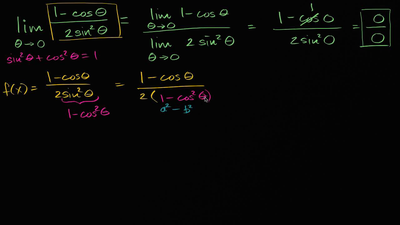 lim θ→0 1-cosθ / 2sin²θ = lim θ→0 1-cosθ / lim θ→0 2sin²θ = 1-cos0 / 2sin²0 = 0 / 0
1
sin²θ + cos²θ = 1
f(x) = 1-cosθ / 2sin²θ = 1-cosθ / 2(1-cos²θ)
1-cos²θ
a² - b²